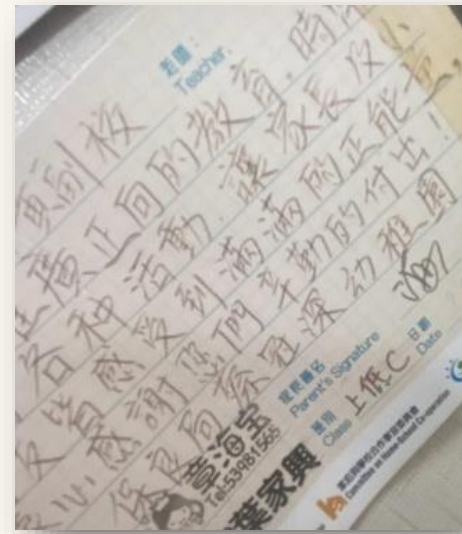 老師:
Teacher:
副校
廣正向的教育,時
各種活動,讓家長及小
皆感受到滿滿的正能量,
心感謝您們辛勤的付出!
保良局蔡冠深幼稚園
家長簽名
Parent's Signature
日期
Date
班別
Class
上低C
章海宝
Tel:53981565
葉家興
家庭與學校合作事宜委員會
Committee on Home-School Co-operation